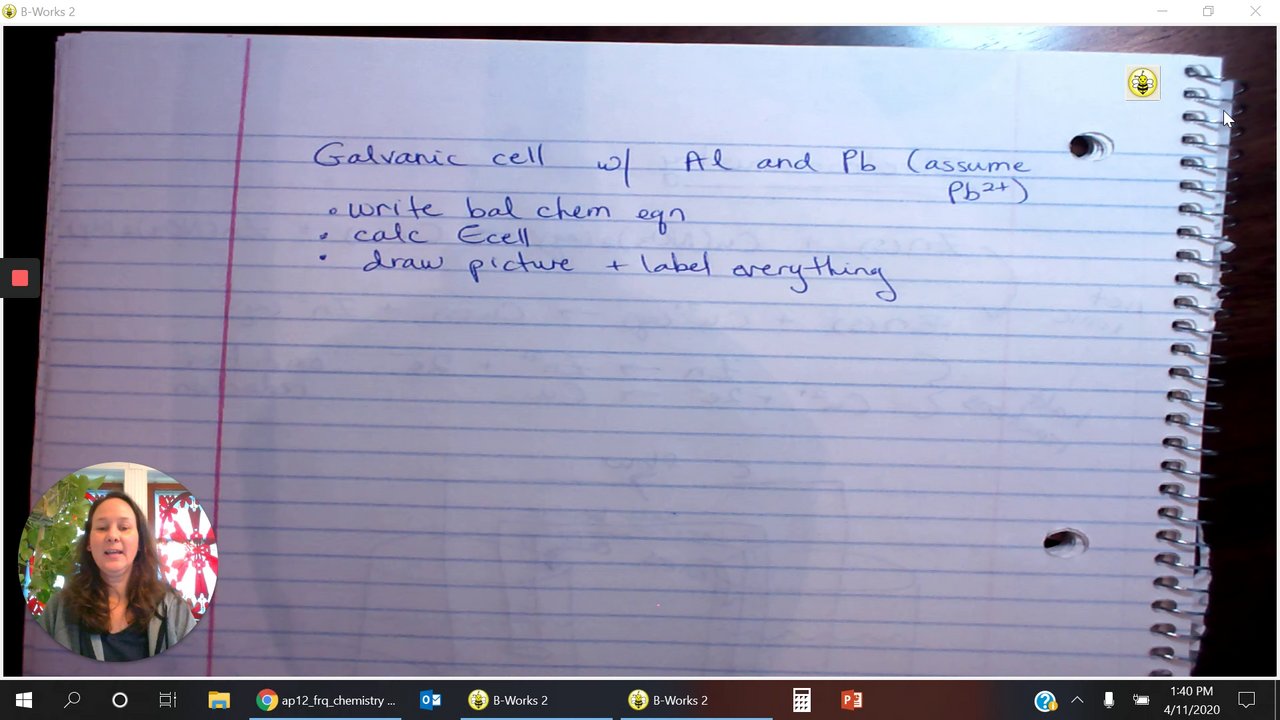 B-Works 2
Galvanic cell w/ Al and Pb (assume
Pb²⁺)
• write bal chem eqn
• calc Ecell
• draw picture + label everything
ap12_frq_chemistry ...
B-Works 2
B-Works 2
1:40 PM
4/11/2020